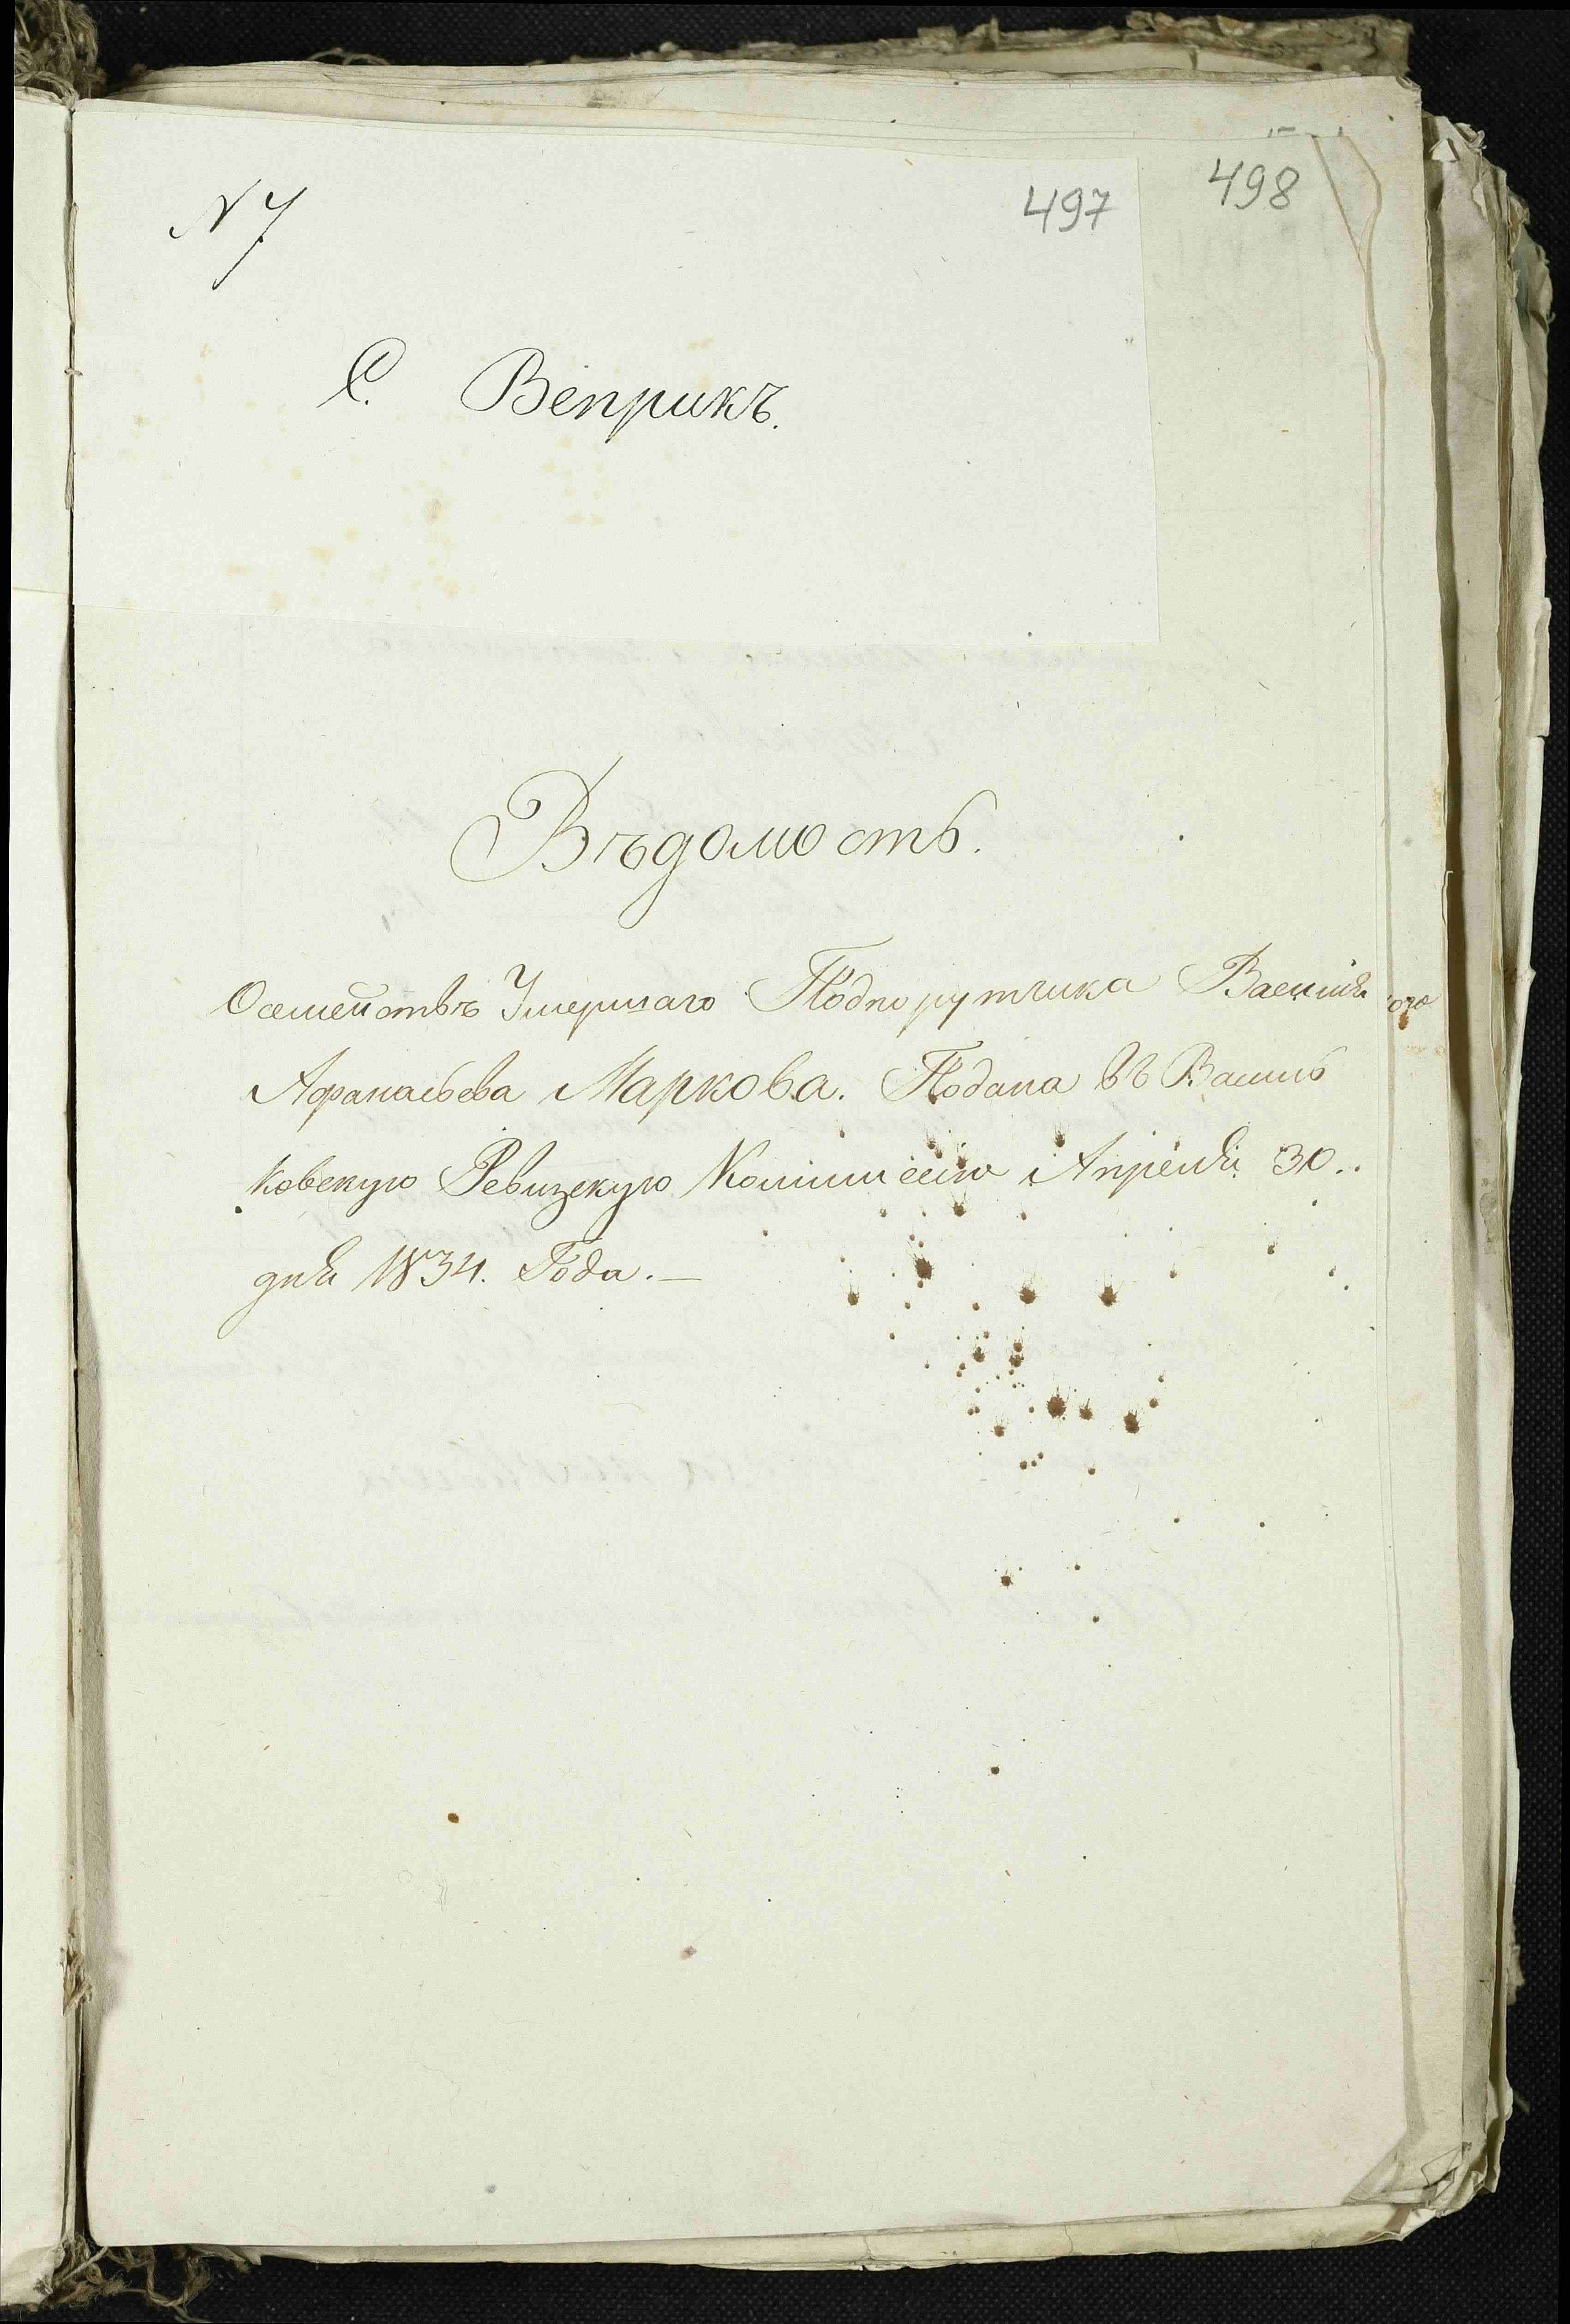 N 7
497
498
С. Веприкъ.
Вѣдомость.
Осемействѣ Умершаго Подпорутчика Василія
Афанасьева Маркова. Подана въ Василь
ковскую Ревизскую Коммисію Апреля 30..
дня 1834. Года. —